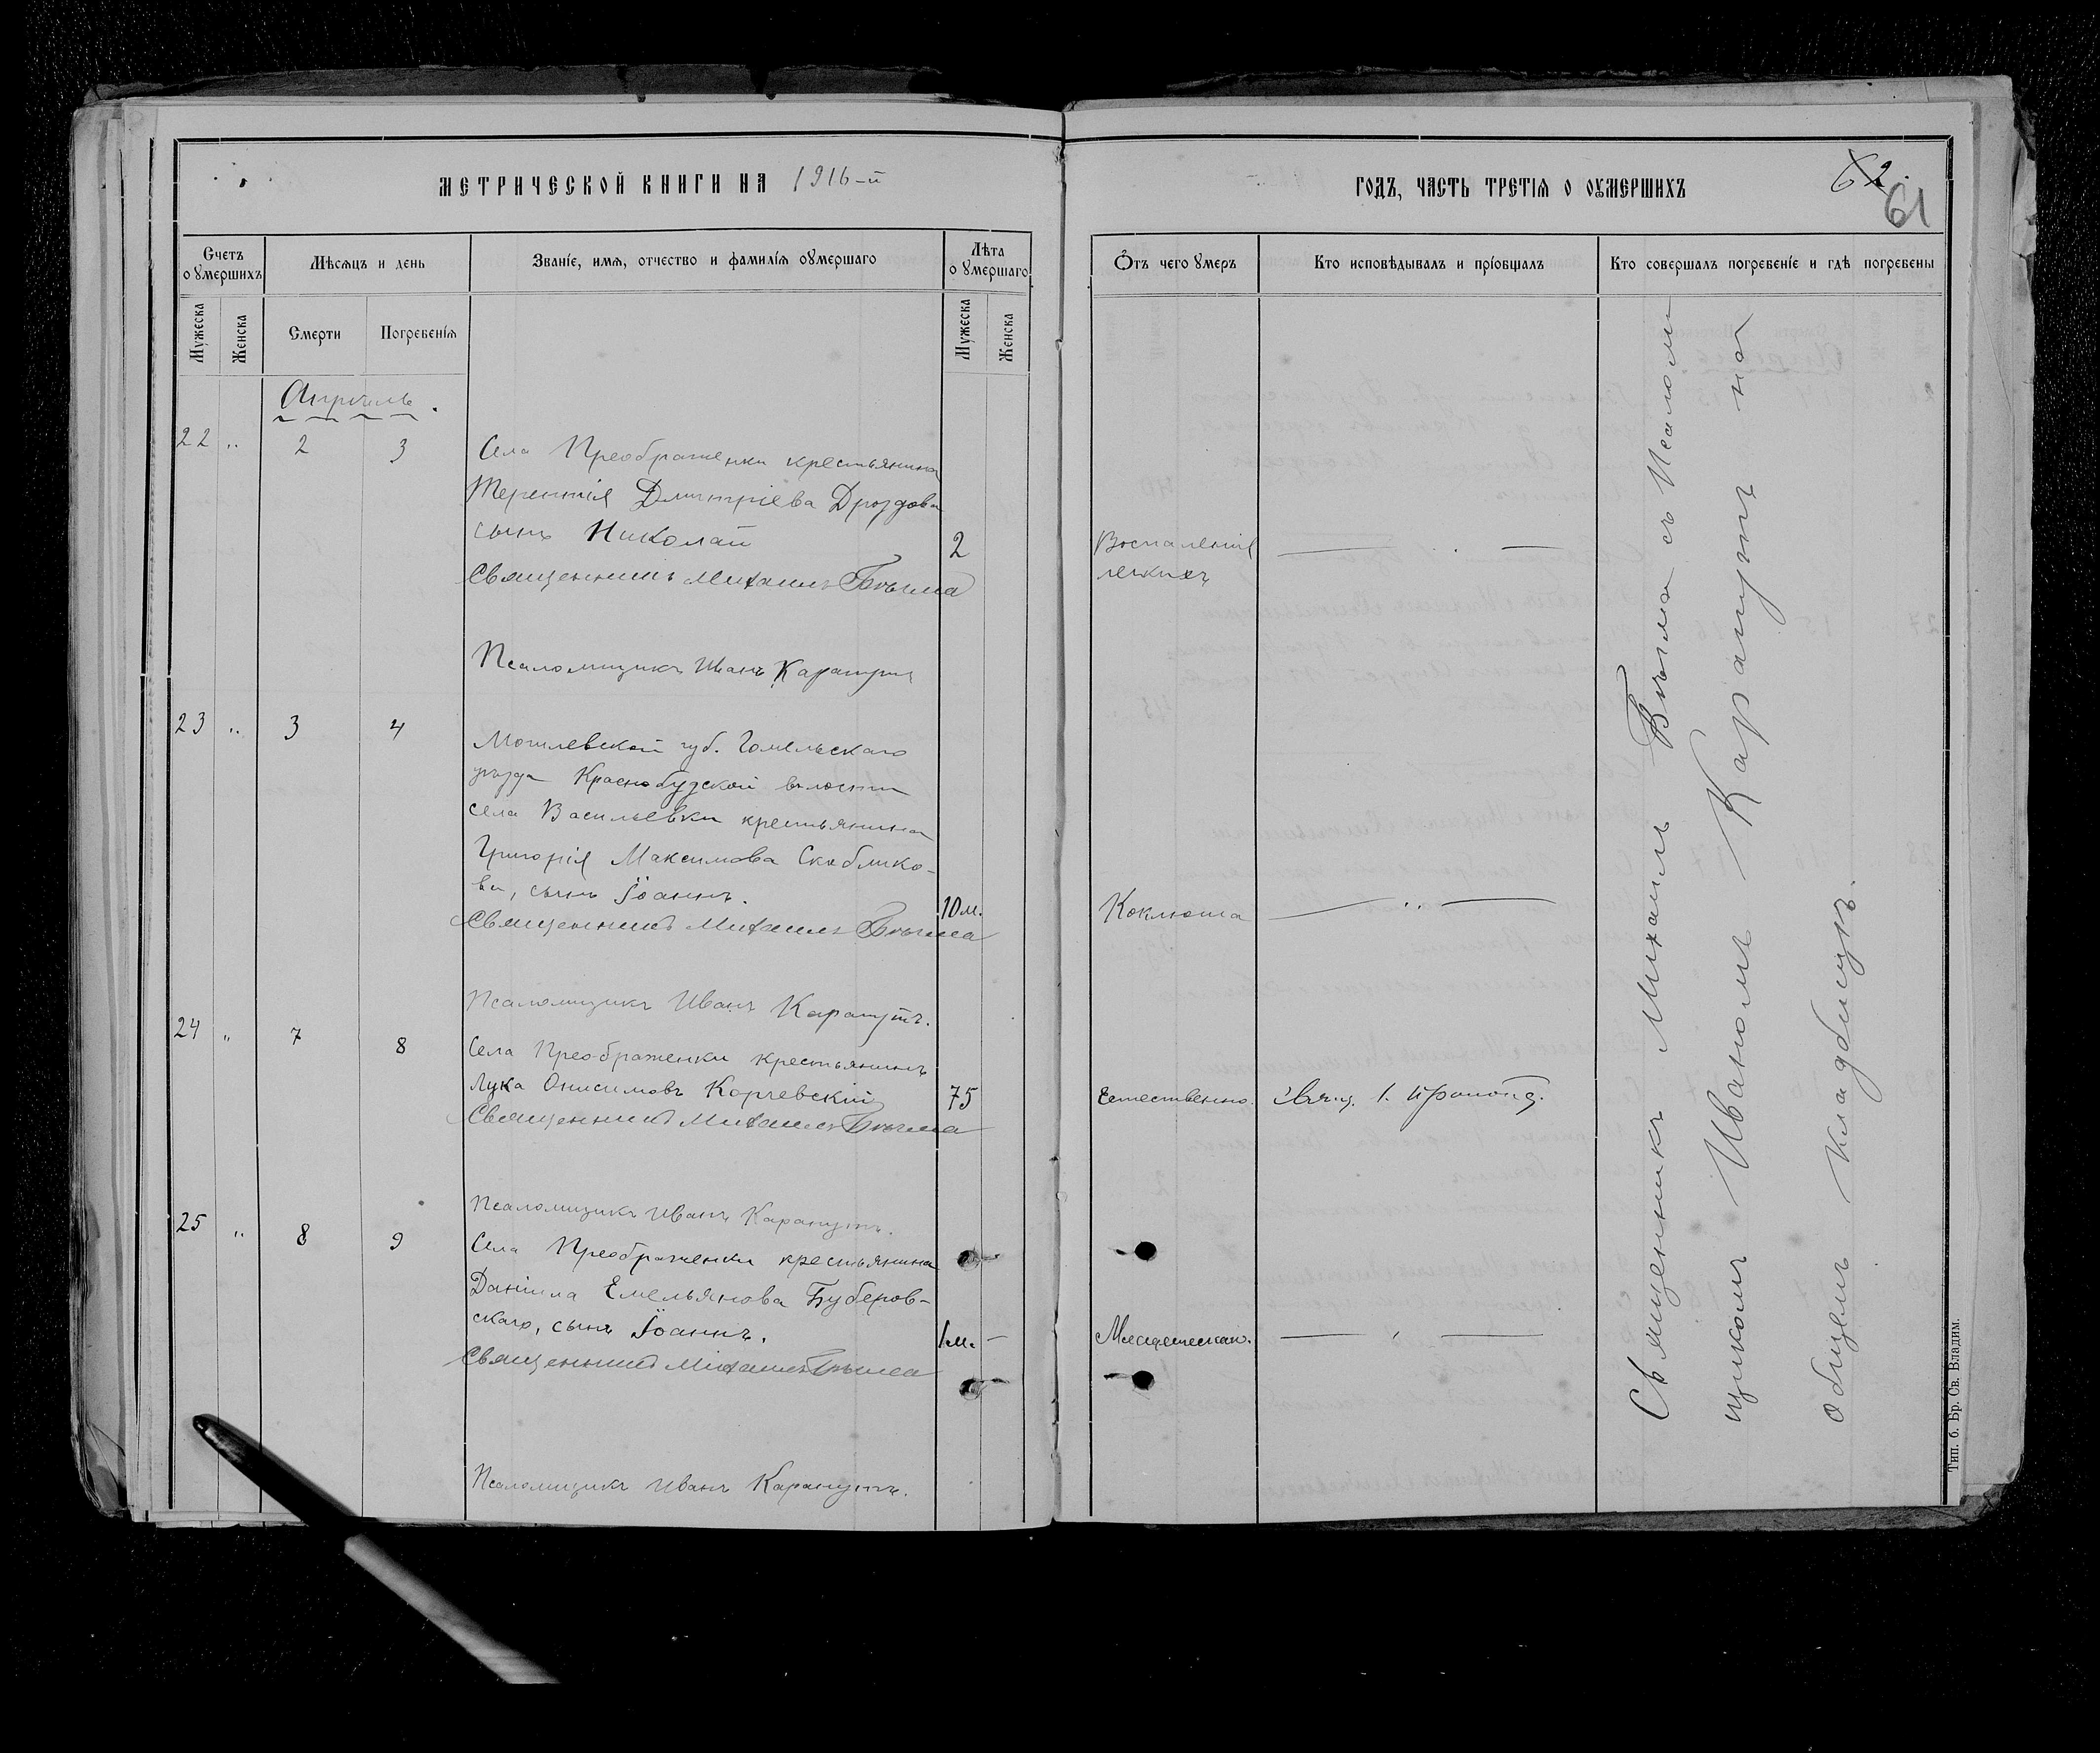 МЕТРИЧЕСКОЙ КНИГИ НА 1916-й
Счетъ оумершихъ
Мѣсяцъ и день
Званіе, имя, отчество и фамилія оумершаго
Лѣта оумершаго
Мужеска
Женска
Смерти
Погребенія
Мужеска
Женска
Апрѣль.
22 „ 2 3
Села Преображенки крестьянина
Терентія Дмитріева Дроздова
сынъ Николай 2
Священникъ Михаилъ
Псаломщикъ Иванъ Карапутъ
23 „ 3 4
Могилевской губ. Гомельскаго
уѣзда Краснобудской волости
села Васильевки крестьянина
Григорія Максимова Скоблико-
ва, сынъ Іоаннъ. 10 м.
Священникъ Михаилъ
Псаломщикъ Иванъ Карапутъ.
24 „ 7 8
Села Преображенки крестьянинъ
Лука Онисимовъ Корчевскій 75
Священникъ Михаилъ
Псаломщикъ Иванъ Карапутъ.
25 „ 8 9
Села Преображенки крестьянина
Даніила Емельянова Буберов-
скаго, сынъ Іоаннъ. 1 м. –
Священникъ Михаилъ
Псаломщикъ Иванъ Карапутъ.
ГОДЪ, ЧАСТЬ ТРЕТІЯ О ОУМЕРШИХЪ
62.
61
Отъ чего умеръ
Кто исповѣдывалъ и пріобщалъ
Кто совершалъ погребеніе и гдѣ погребены
Воспаленія
легкихъ
Коклюша
Естественно.
Младенческ.
Священникъ Михаилъ съ Псалом
щикомъ Иваномъ Карапутъ на
общемъ кладбищѣ.
Тип. б. Бр. Св. Владим.